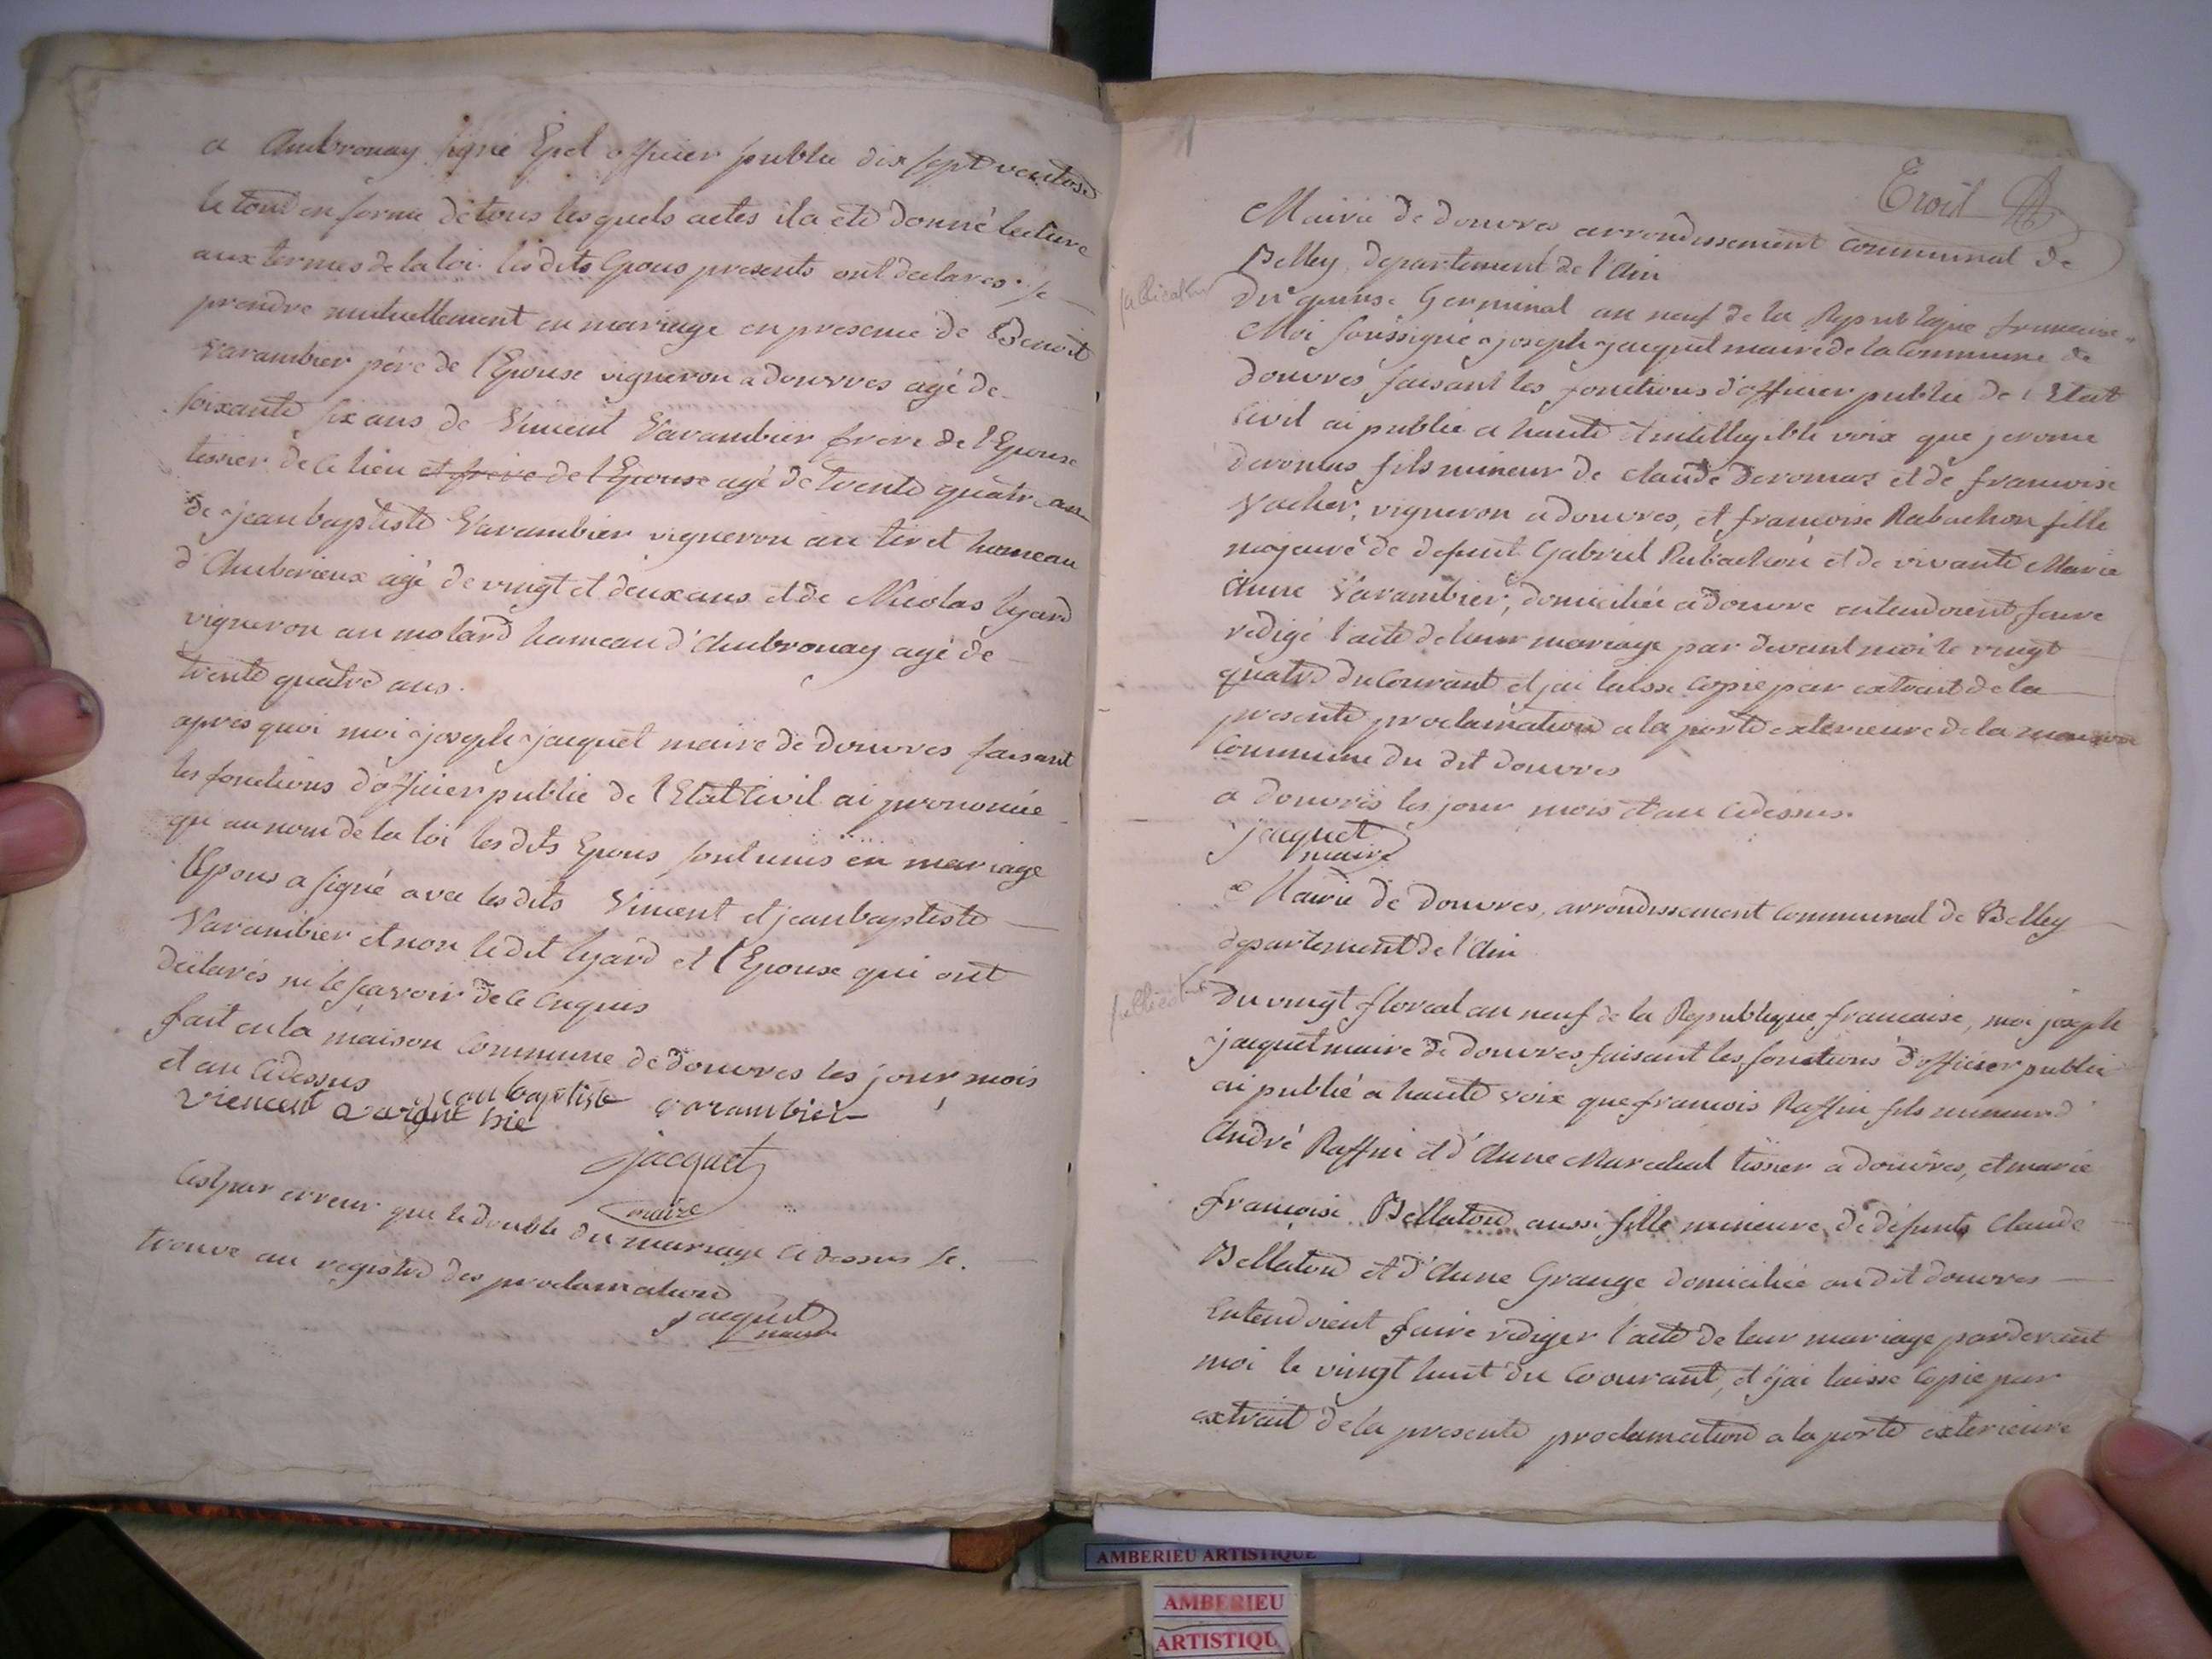 a Ambronay signé Epel officier public dix sept ventose
le tout en forme de tous les quels actes il a été donné lecture
aux termes de la loi. les dits Epous presents ont declares se
prendre mutuellement en mariage en presence de Benoit
Varambier père de l'Epouse vigneron a douvres agé de
soixante six ans de Vincent Varambier frere de l'Epouse
tissier de ce lieu et frere de l'Epouse agé de trente quatre ans
de jean baptiste Varambier vigneron au tiret hameau
d'Amberieux agé de vingt et deux ans et de Nicolas lyard
vigneron au molard hameau d'Ambronay agé de
trente quatre ans.
apres quoi moi joseph jacquet maire de douvres faisant
les fonctions d'officier public de l'Etat Civil ai prononcé
qu'au nom de la loi les dits Epous sont unis en mariage
l'Epous a signé avec les dits Vincent et jean baptiste
Varambier et non le dit lyard et l'Epouse qui ont
declarés ne le scavoir de ce Enquis
fait en la maison Commune de douvres les jour mois
et an Cidessus
jean baptiste varambier
viencent varanbie
jacquet
maire
Cest par erreur que le double du mariage Cidessus se
trouve au registre des proclamation
jacquet
maire
1
Troit
Mairie de douvres arrondissement Communal de
Belley, departement de l'Ain
publication
Du quinse Germinal an neuf de la Republique francaise
Moi soussigné joseph jacquet maire de la Commune de
douvres faisant les fonctions d'officier public de l'Etat
Civil ai publié a haute et intelligible voix que jerome
deromas fils mineur de claude deromas et de francoise
Vacher, vigneron a douvres, et francoise Rabachon fille
majeure de defunt Gabriel Rabachon et de vivante Marie
Anne Varambier, domiciliée a douvre entendoient faire
redigé l'acte de leur mariage par devant moi le vingt
quatre du Courant et jai laissé Copie par extrait de la
presente proclamation a la porte exterieure de la maison
Commune du dit douvres
a douvres les jour mois et an Cidessus.
jacquet
maire
Mairie de douvres, arrondissement Communal de Belley
departement de l'Ain
publication
Du vingt floreal an neuf de la Republique francaise, moi joseph
jacquet maire de douvres faisant les fonctions d'officier public
ai publié a haute voix que francois Raffin fils mineur d'
André Raffin et d'Anne Marechal tissier a douvres, et marie
francoise Bellaton aussi fille mineure de défunts Claude
Bellaton et d'Anne Grange domiciliée au dit douvres
Entendoient faire rediger l'acte de leur mariage pardevant
moi le vingt huit du Coourant, et jai laissé Copie par
extrait de la presente proclamation a la porte exterieure
AMBERIEU ARTISTIQUE
AMBERIEU
ARTISTIQU